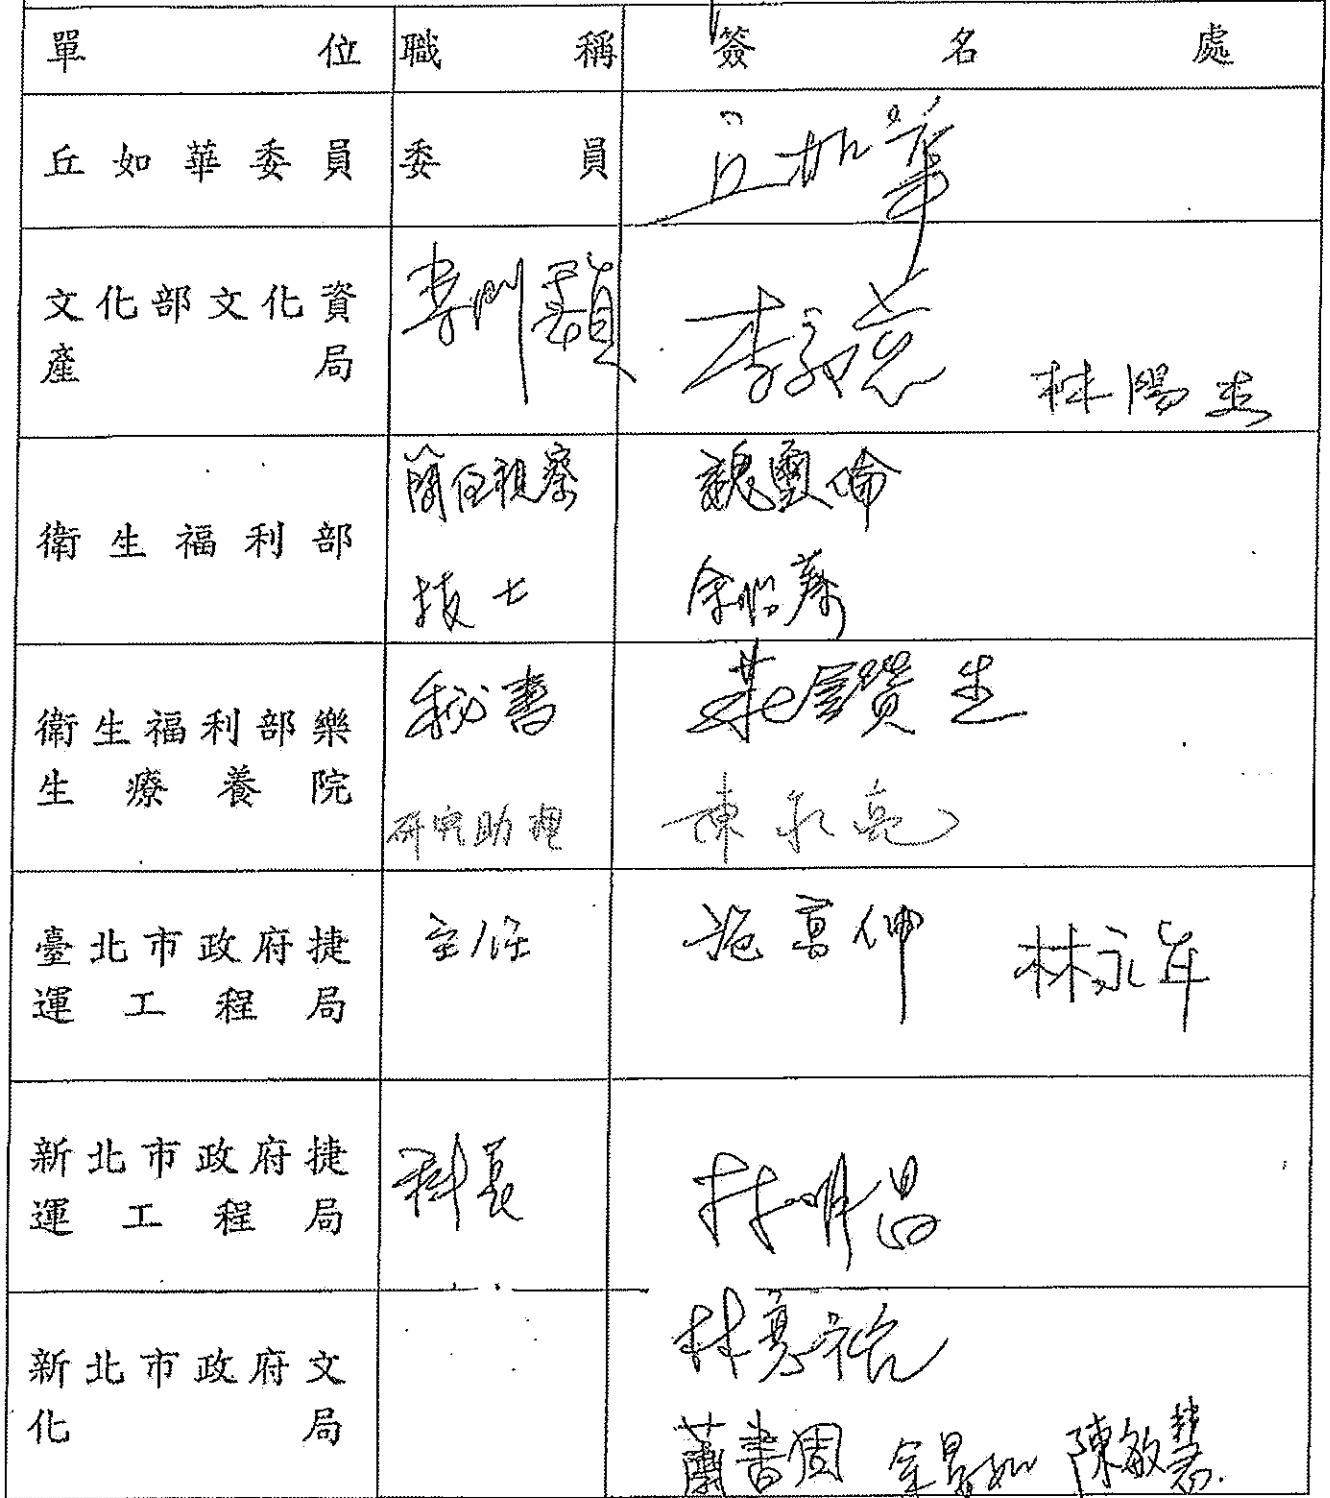 單位 職稱 簽名處
丘如華委員 委員 丘如華
文化部文化資產局 專門委員 李 林陽杰
衛生福利部 簡任視察 魏璽倫
技士 余
衛生福利部樂生療養院 秘書 莊 生
研究助理 陳永亮
臺北市政府捷運工程局 主任 施 伸 林永年
新北市政府捷運工程局 科長 林明昌
新北市政府文化局 林 祐
蕭書 如 陳敏慧